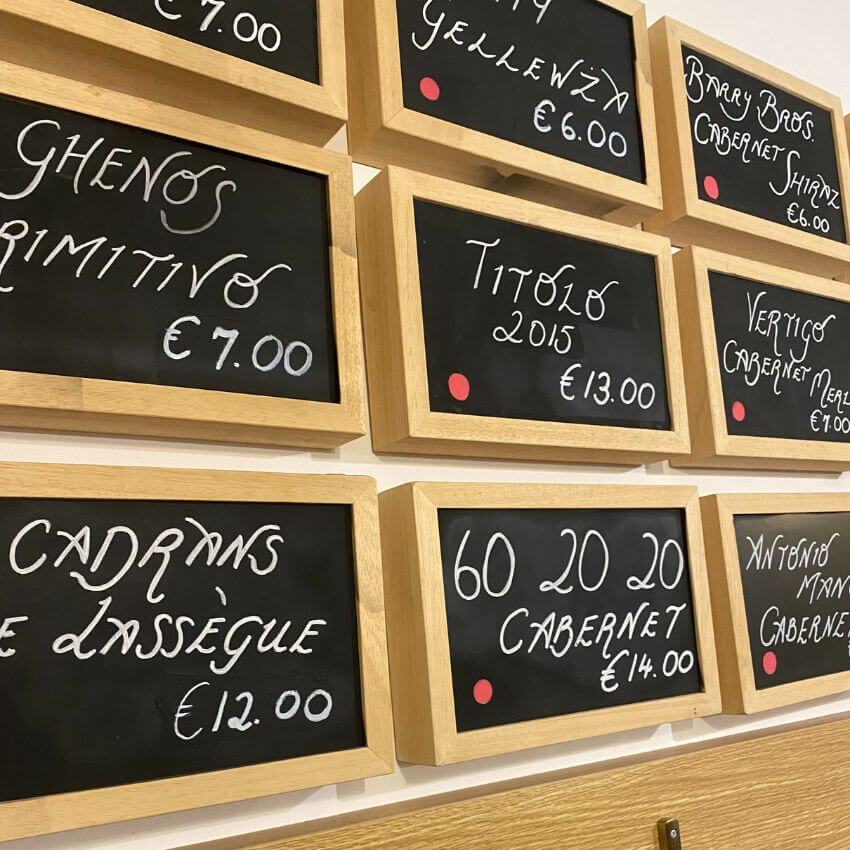 7.00
GELLEWŻA
€6.00
BARRY BROS.
CABERNET
SHIRAZ
€6.00
GHENOS
RIMITIVO
€7.00
TITOLO
2015
€13.00
VERTIGO
CABERNET MERL
€7.00
CADRANS
E LASSÈGUE
€12.00
60 20 20
CABERNET
€14.00
ANTONIO
MAN
CABERNE